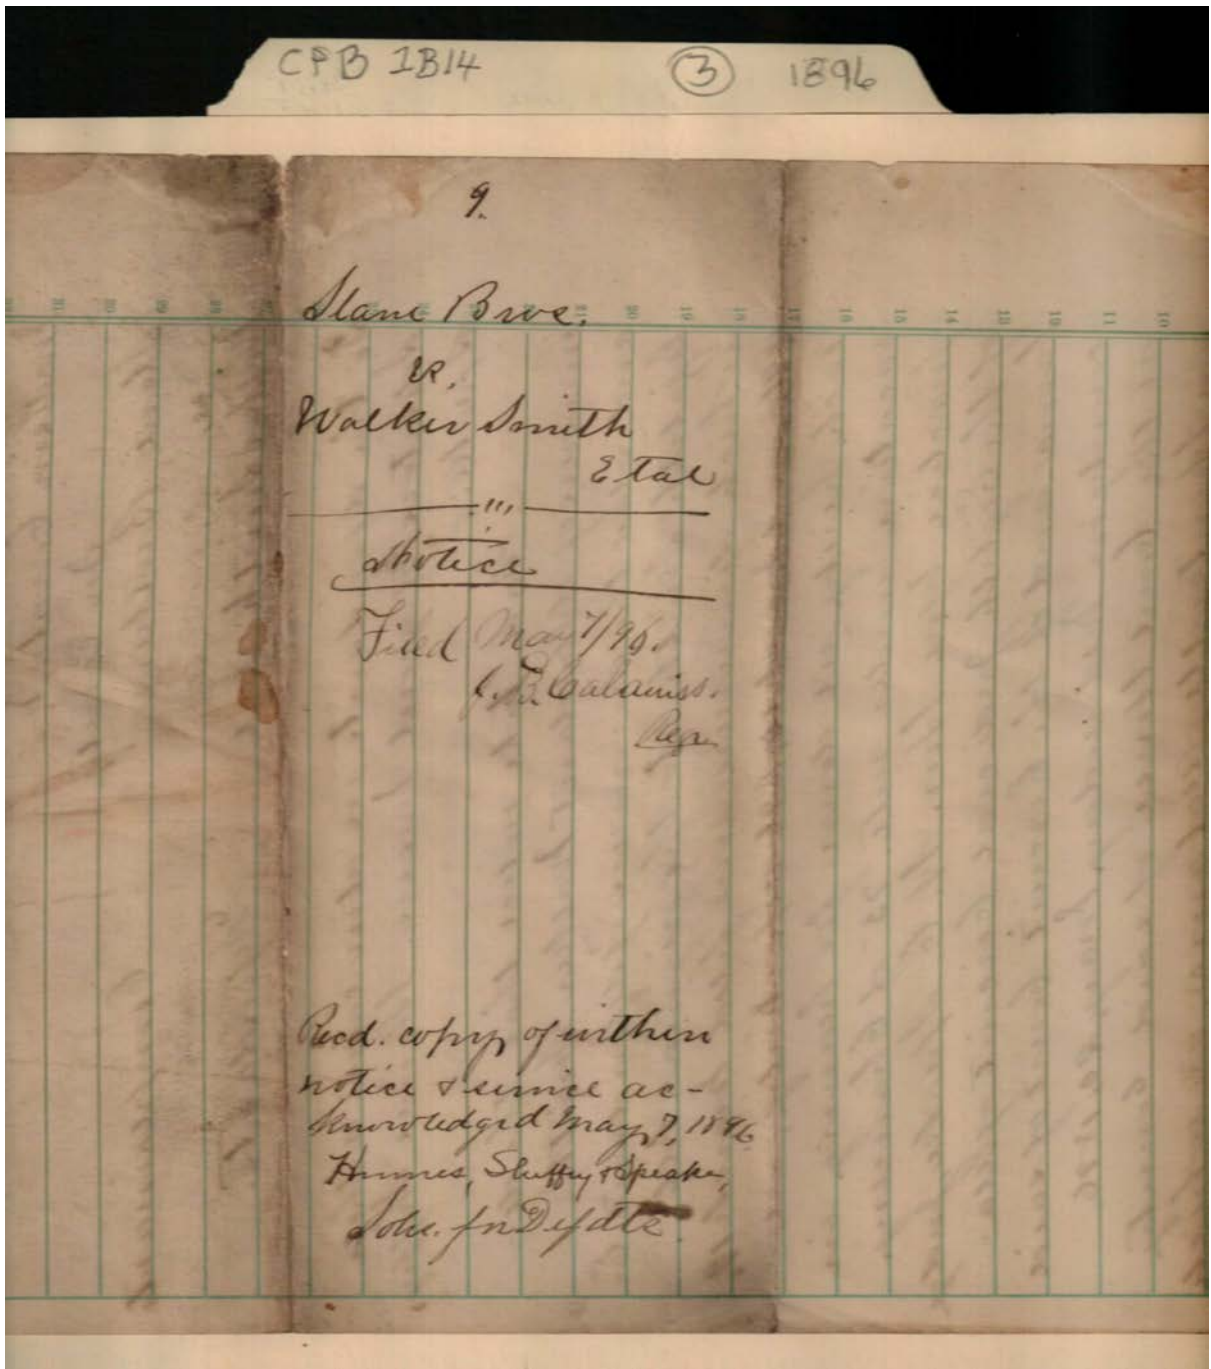 CPB 1B14 3 1896
9.
Slane Bros.
vs.
Walker Smith
Etal
Notice
Filed May 7/96.
Recd. copy of within
notice & service ac-
knowledged May 7, 1896
Humes, Sheffey & Speake,
Sols. for Defdts.